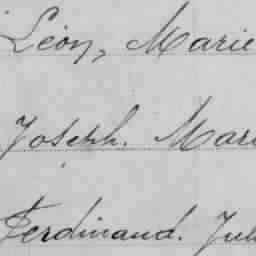 Léon, Marie
Joseph. Mari
Ferdinand. Jul